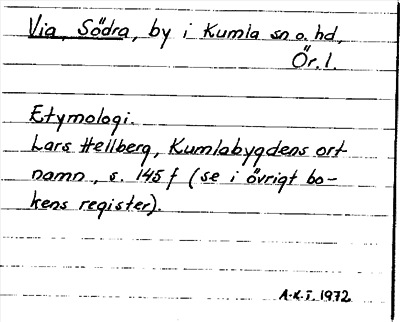 Via, Södra, by i Kumla sn o. hd,
Ör. l.
Etymologi.
Lars Hellberg, Kumlabygdens ort-
namn, s. 145 f (se i övrigt bo-
kens register).
A.K.T. 1972